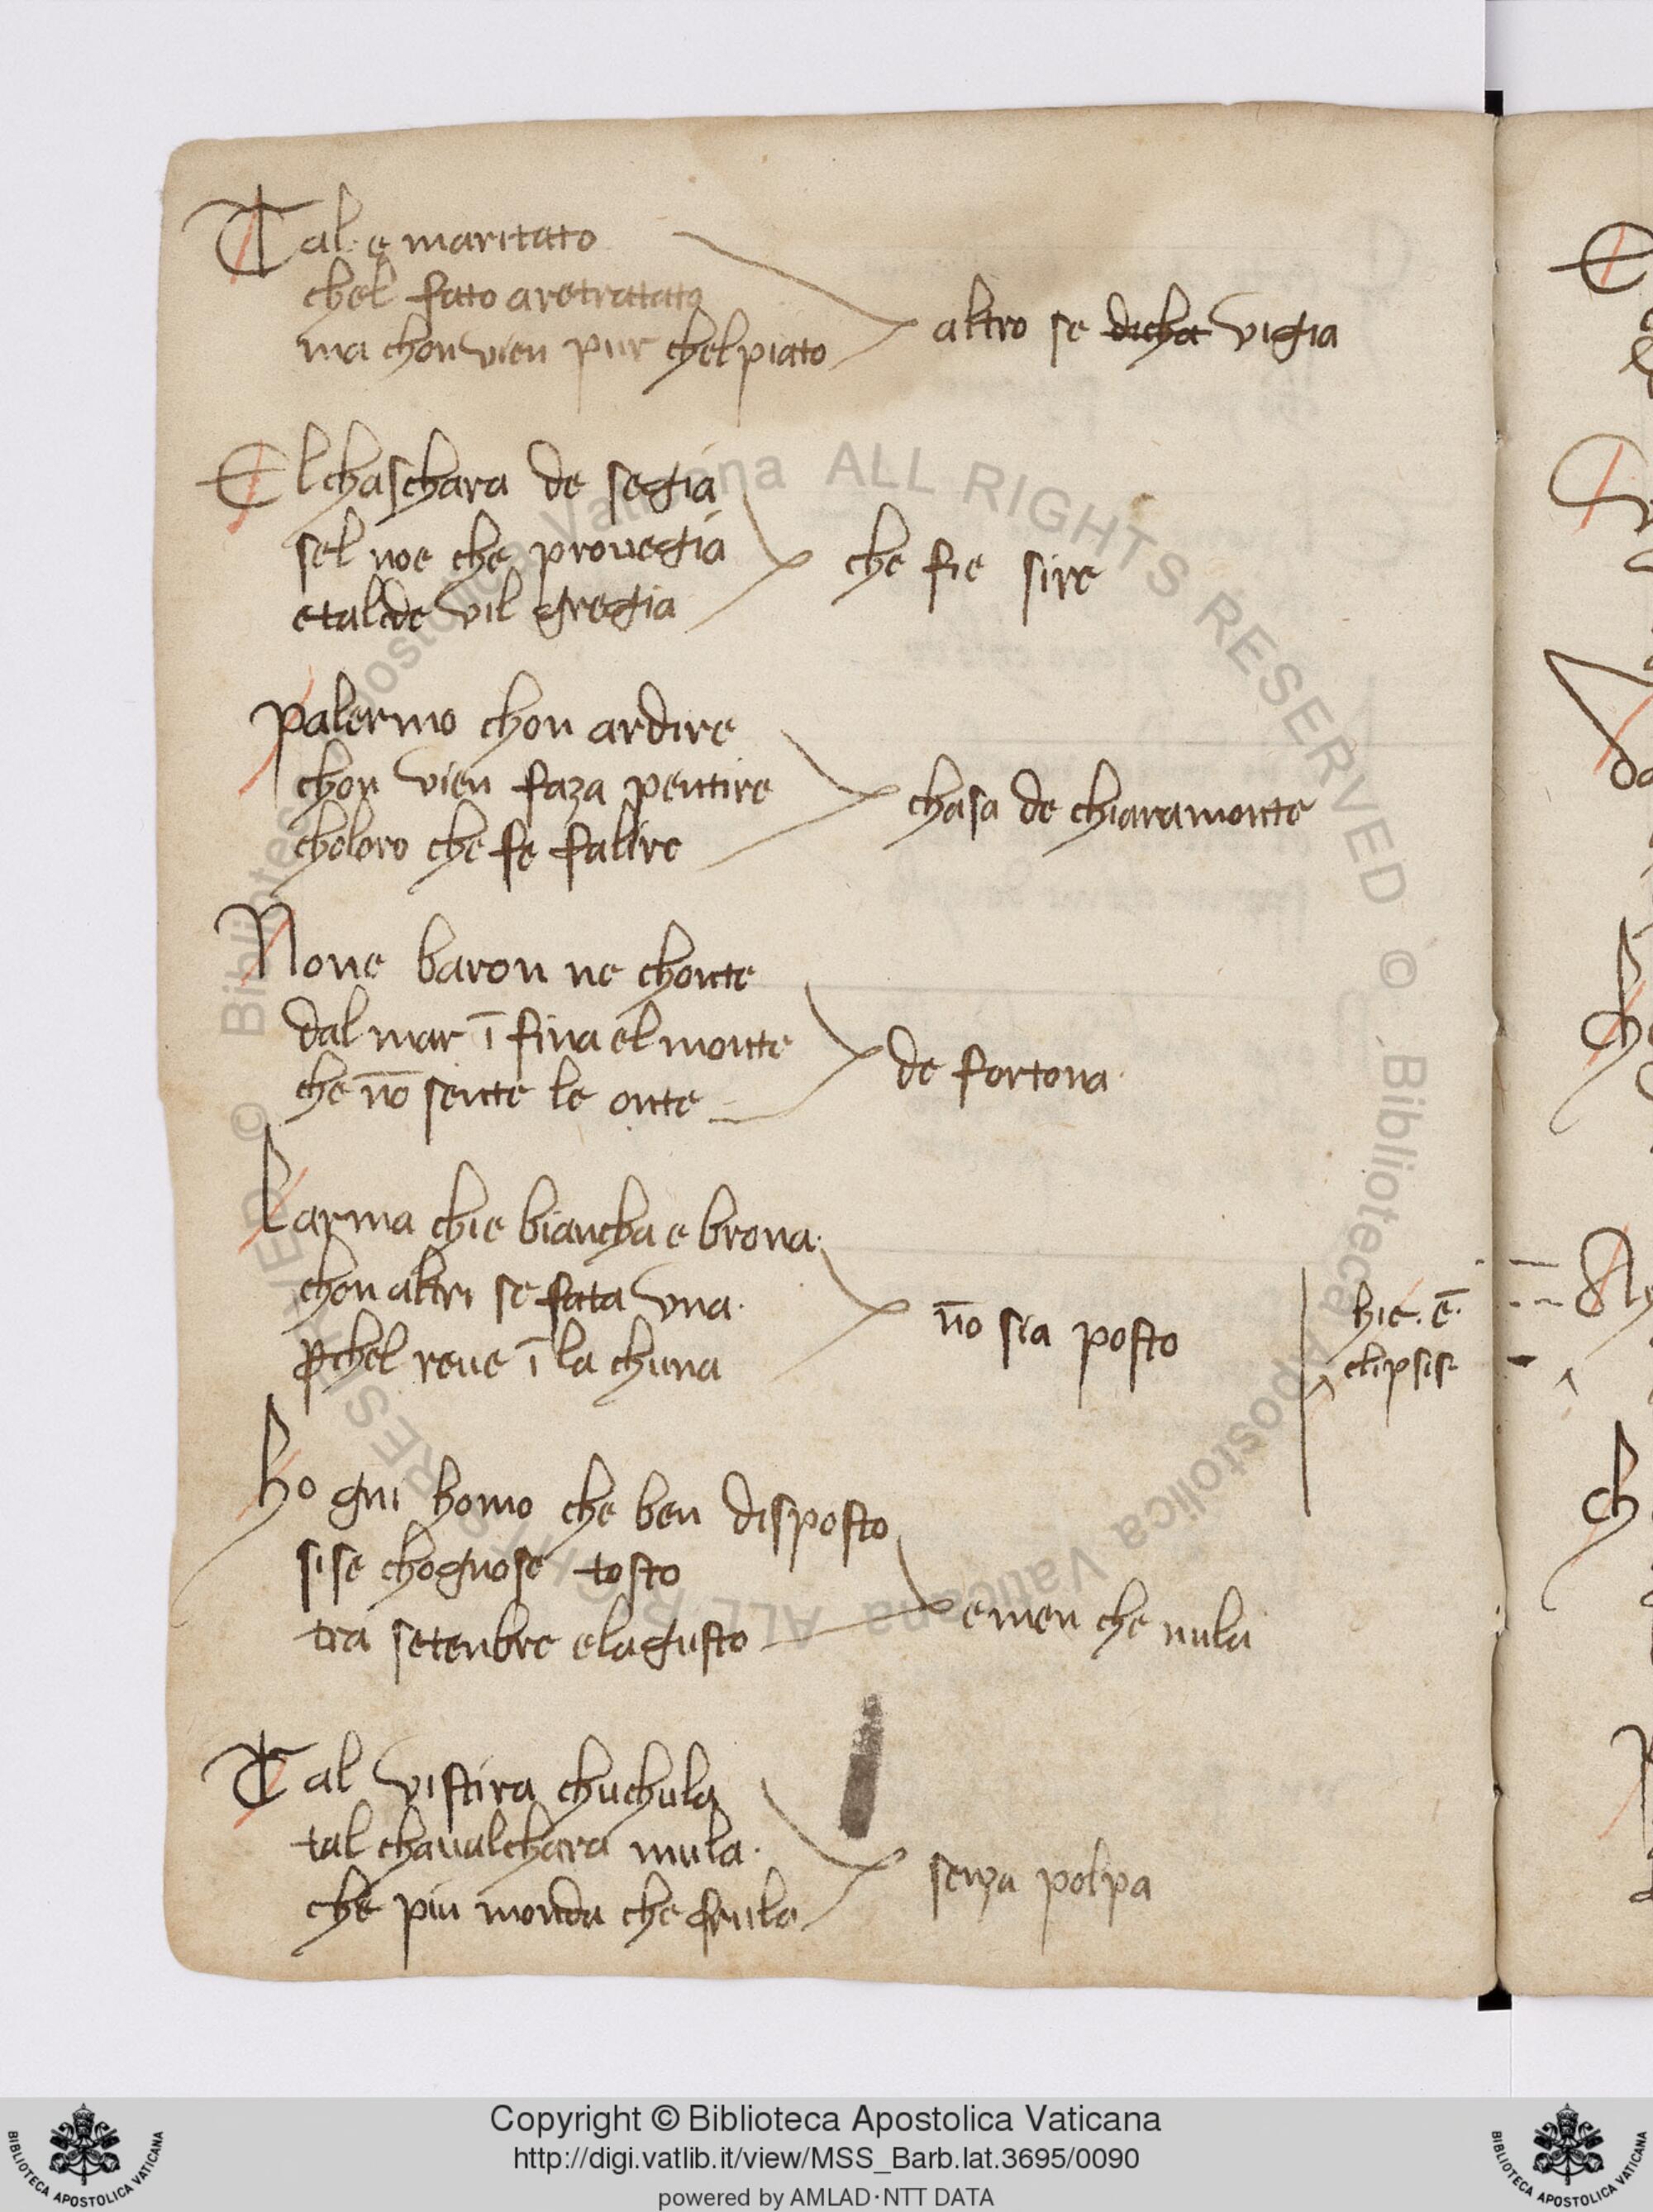 Tal·e maritato
chel fato aretratato
ma chon vien pur chel piato
altro se dicha vigia
El chaschara de segia
sel noe che provegia
e tal de vil gregia
che fie sire
Palermo chon ardire
chon vien faza pentire
choloro che fe falire
chasa de chiaramonte
None baron ne chonte
dal mar ī fina el monte
che nō sente le onte
de fortona·
Larma chie biancha e brona·
chon altri se fata vna·
ꝑchel reue ī la chuna
nō sia posto
hie·ē·
clipsis
hogni homo che ben disposto
si se chognose tosto
tra setenbre elagusto
e men che nula
Tal vistira chuchula
tal chaualchara mula·
che piu monda che frula
senza polpa
© Biblioteca Apostolica Vaticana ALL RIGHTS RESERVED © Biblioteca Apostolica Vaticana ALL RIGHTS RESERVED
Copyright © Biblioteca Apostolica Vaticana
http://digi.vatlib.it/view/MSS_Barb.lat.3695/0090
powered by AMLAD·NTT DATA
BIBLIOTECA APOSTOLICA VATICANA
BIBLIOTECA APOSTOLICA VATICANA